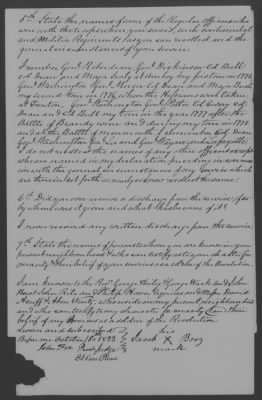 5th State the names of some of the Regular officers who
were with the troops where you served, such Continental
and Militia Regiments as you can recollect, and the
general circumstances of your service.
I remember Genl Roberdeau Genl Dickinson Col Bull
Col Dean and Major Lealy at Amboy my first time in 1776
Genl Washington Genl Mercer Col Dean and Major
my second time in 1776 when the Hessians were taken
at Trenton, Genl Washington Genl Potter Col
Dean and Col Bull my time in the year 1777 after the
Battle of Brandy wine and during my time in 1778
and at the Battle of monmouth I remember Col Dean
Genl Washington Genl Lee and Genl Wayne and Lafayette
I do not recollect the names of any other officers except
whose are named in my declaration preceding in
with the general circumstances of my service which
are therein set forth as nearly as I now recollect the same.
6th Did you ever receive a discharge from the service, if so
by whom was it given and what has become of it?
I never received any written discharge from the service.
7th State the names of persons to whom you are known in your
present neighbourhood & who can testify as to your character for
veracity & their belief of your services as a soldier of the Revolution.
I am known to the Revd George
and David
who reside in my present neighbourhood
and who can testify my character for veracity and their
belief of my services as a soldier of the Revolution
Sworn and subscribed his
Before me October 1833 Jacob X
John mark